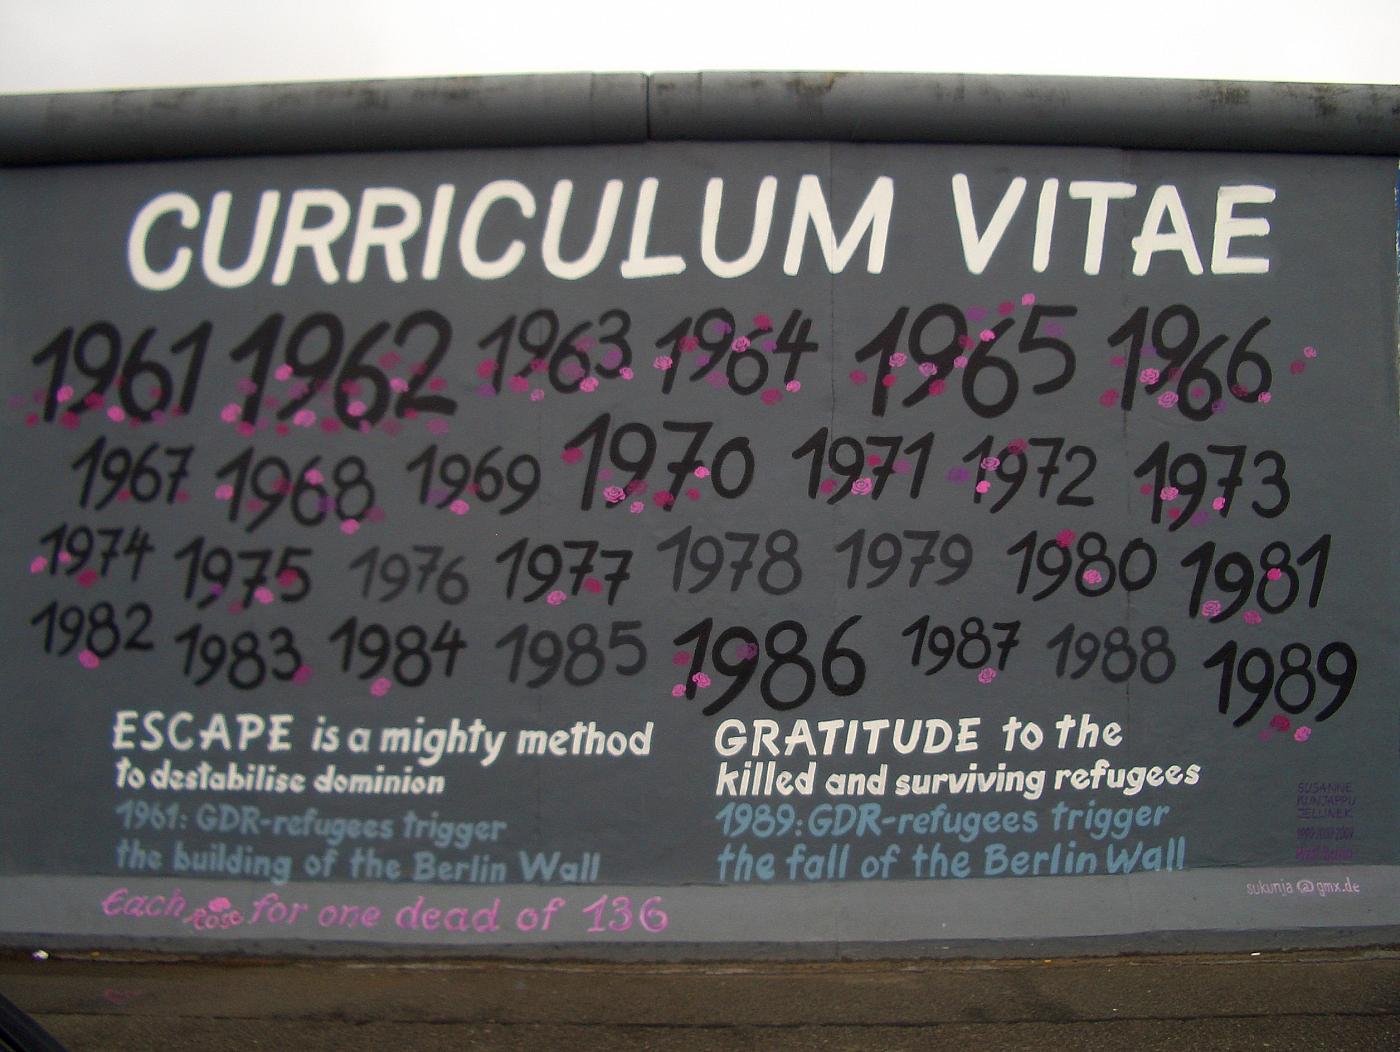 CURRICULUM VITAE
1961 1962 1963 1964 1965 1966
1967 1968 1969 1970 1971 1972 1973
1974 1975 1976 1977 1978 1979 1980 1981
1982 1983 1984 1985 1986 1987 1988 1989
ESCAPE is a mighty method
to destabilise dominion
1961: GDR-refugees trigger
the building of the Berlin Wall
GRATITUDE to the
killed and surviving refugees
1989: GDR-refugees trigger
the fall of the Berlin Wall
Each Rose for one dead of 136
SUSANNE
KUNJAPPU
JELLINEK
sukunja@gmx.de